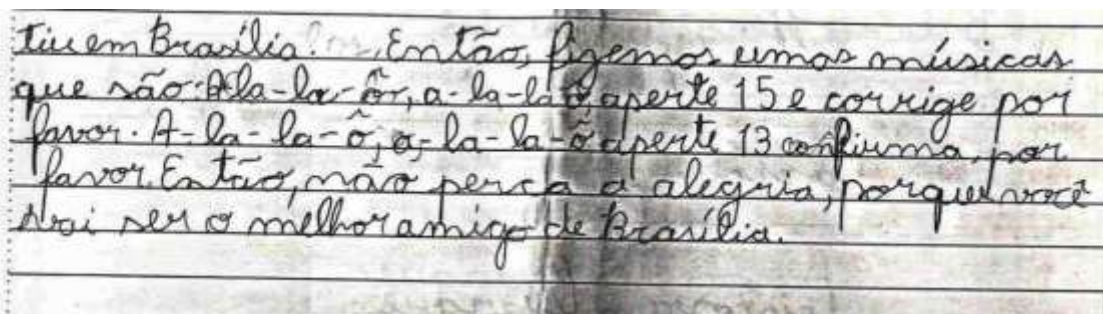 tiu em Brasília. Então, fizemos umas músicas
que são: Ala-la-ô, a-la-laô, aperte 15 e corrige por
favor. A-la-la-ô, a-la-la-ô aperte 13 confirma, por
favor. Então, não perca a alegria, porque você
vai ser o melhor amigo de Brasília.